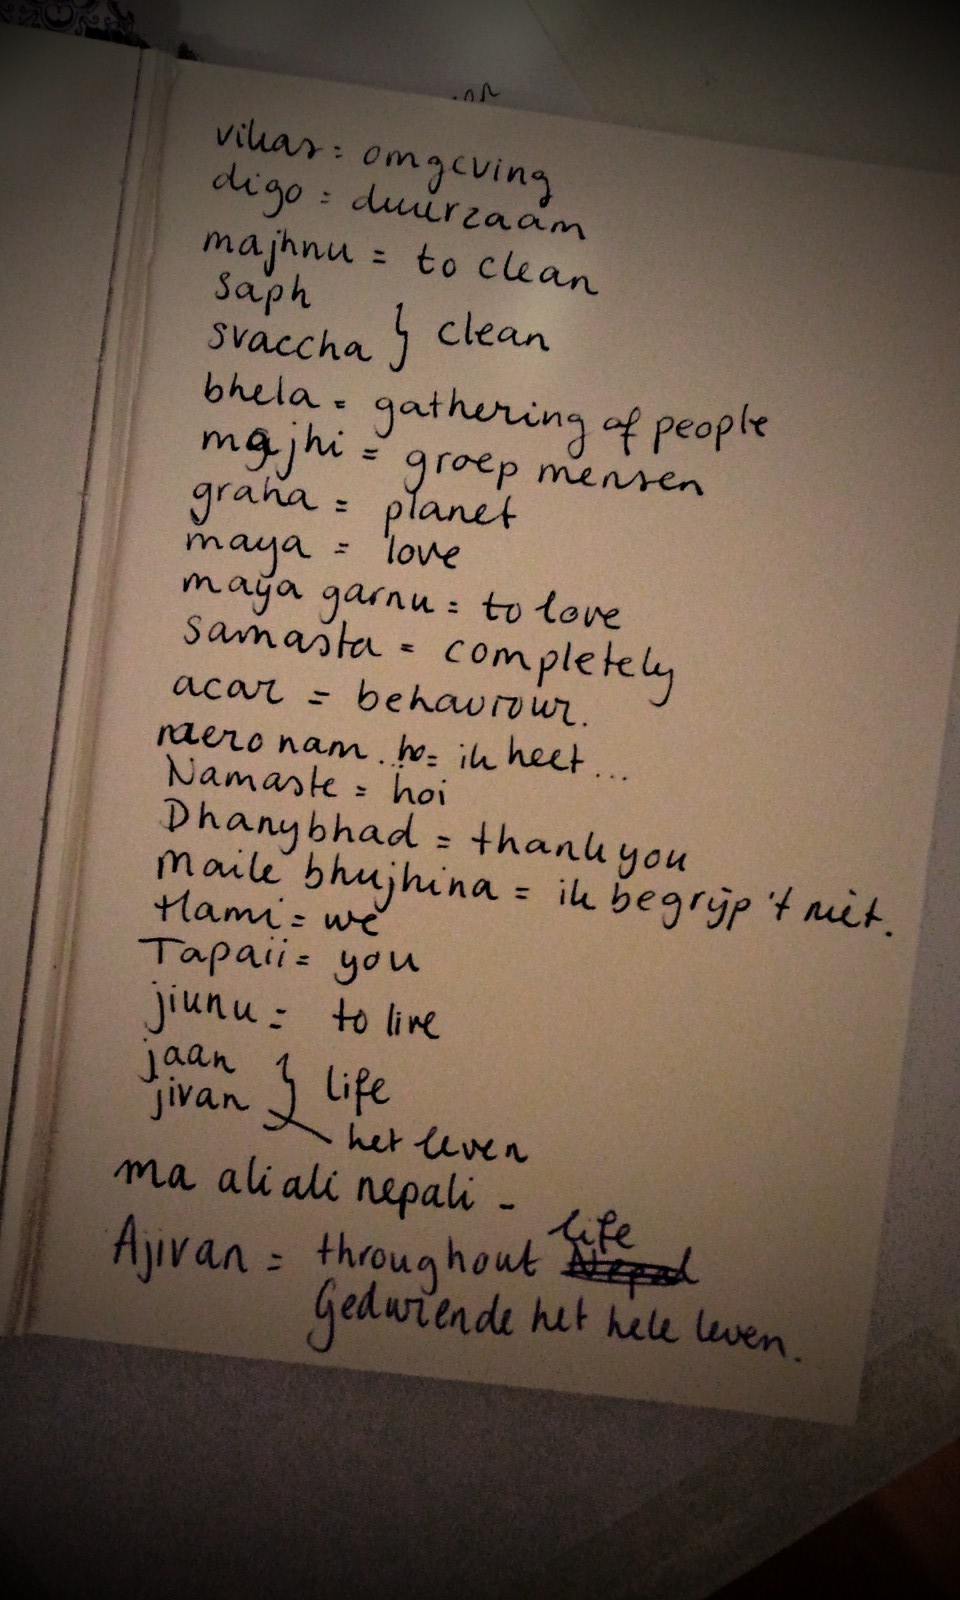 vikas = omgeving
digo = duurzaam
majhnu = to clean
saph
svaccha } clean
bhela = gathering of people
majhi = groep mensen
graha = planet
maya = love
maya garnu = to love
samasta = completely
acar = behaviour.
mero nam ... ho = ik heet ...
Namaste = hoi
Dhanybhad = thank you
Maile bhujhina = ik begrijp 't niet.
Hami = we
Tapaii = you
jiunu = to live
jaan
jivan } life
het leven
ma ali ali nepali -
Ajivan = throughout life
Gedurende het hele leven.